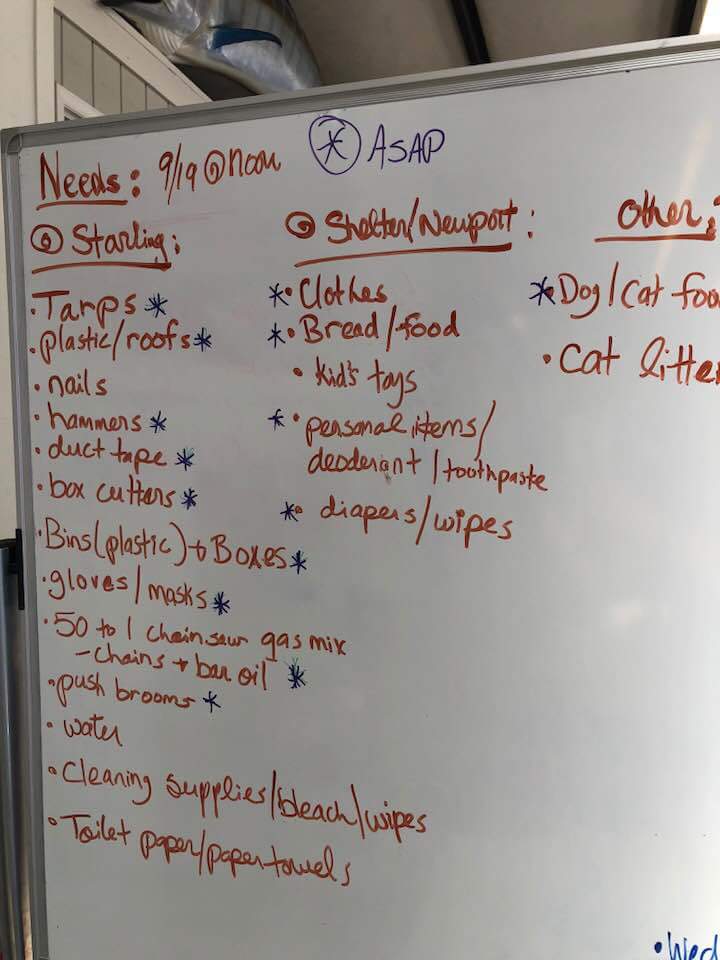 Needs: 9/19 @ noon * ASAP
@ Starling:
• Tarps *
• plastic/roofs *
• nails
• hammers *
• duct tape *
• box cutters *
• Bins (plastic) + Boxes *
• gloves/masks *
• 50 to 1 chainsaw gas mix
- chains + bar oil *
• push brooms *
• water
• Cleaning supplies/bleach/wipes
• Toilet paper/papertowels
@ Shelter/Newport:
* • Clothes
* • Bread/food
• kid's toys
* • personal items/
deoderant/toothpaste
* • diapers/wipes
Other:
* • Dog/Cat foo
• Cat litte
• Wed